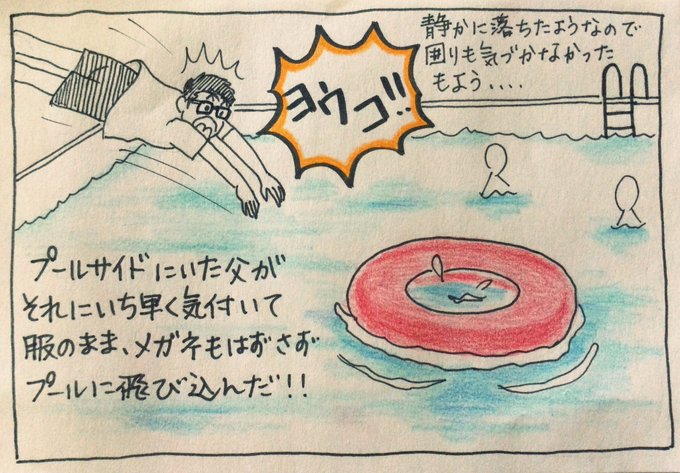 静かに落ちたようなので
囲りも気づかなかった
もよう....
ヨウコ!!
プールサイドにいた父が
それにいち早く気付いて
服のまま、メガネもはずさず
プールに飛び込んだ!!